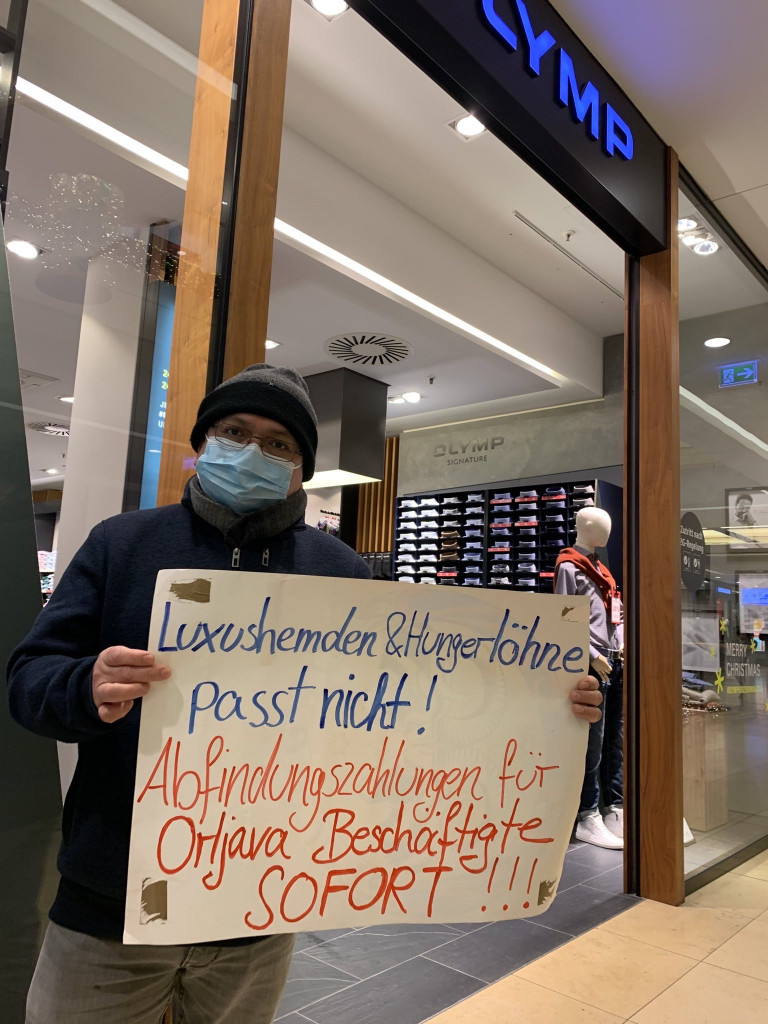 OLYMP
OLYMP
SIGNATURE
Zutritt nach
2G-Regelung
MERRY
CHRISTMAS
Luxushemden & Hungerlöhne
passt nicht!
Abfindungszahlungen für
Orljava Beschäftigte
SOFORT !!!